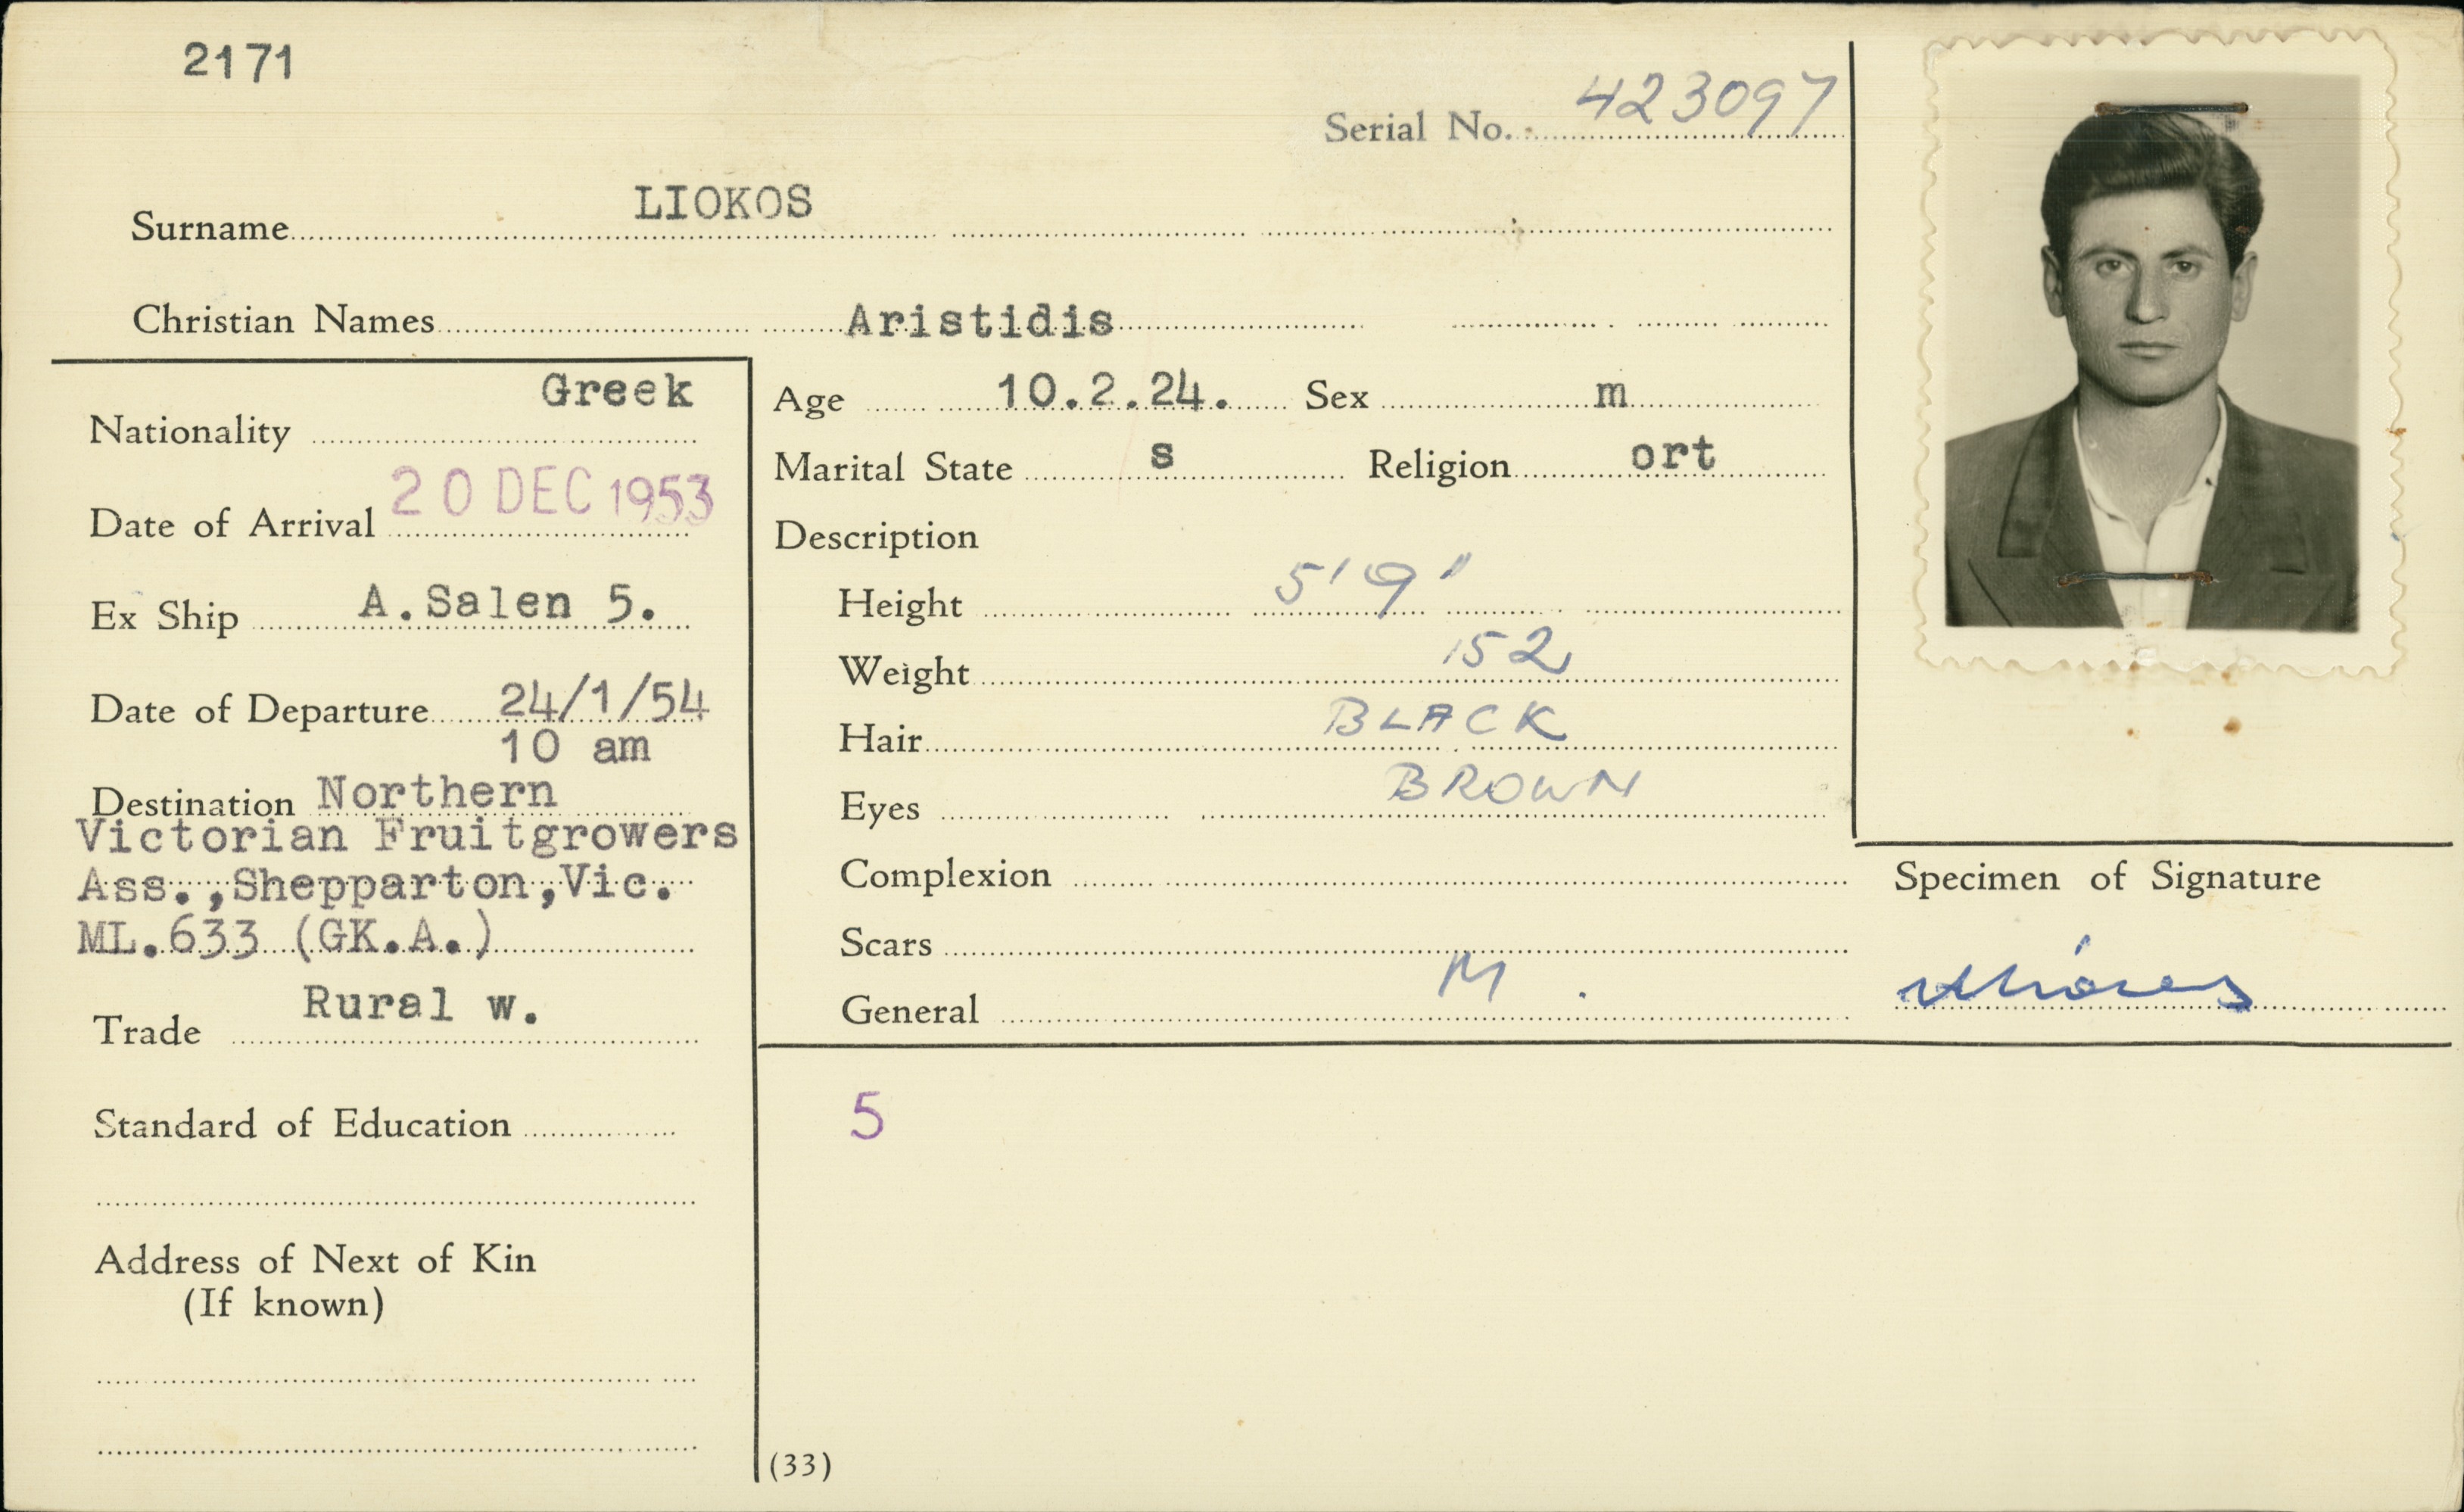 2171
Serial No. 423097
Surname LIOKOS
Christian Names Aristidis
Nationality Greek
Date of Arrival 20 DEC 1953
Ex Ship A.Salen 5.
Date of Departure 24/1/54
10 am
Destination Northern
Victorian Fruitgrowers
Ass.,Shepparton,Vic.
ML.633 (GK.A.)
Trade Rural w.
Standard of Education
Address of Next of Kin
(If known)
Age 10.2.24. Sex m
Marital State s Religion ort
Description
Height 5'9"
Weight 152
Hair BLACK
Eyes BROWN
Complexion
Scars
General M.
Specimen of Signature
5
(33)